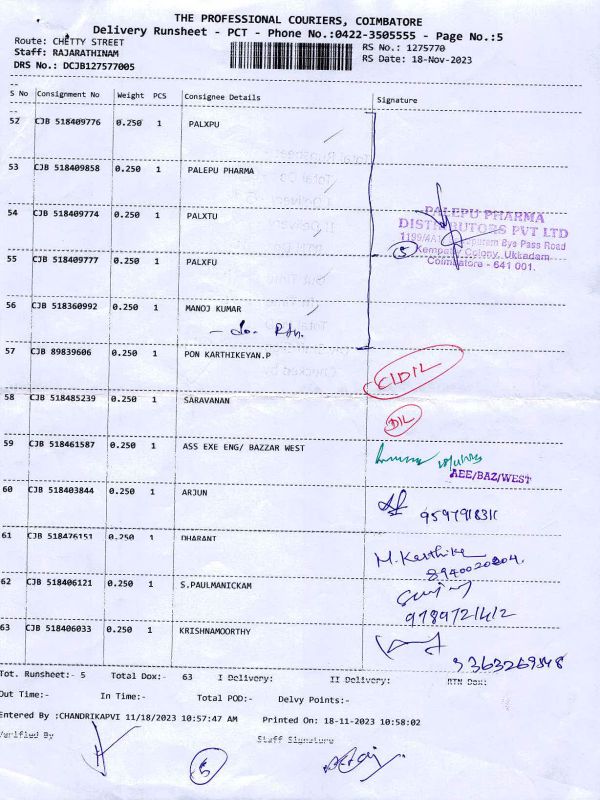 THE PROFESSIONAL COURIERS, COIMBATORE
Delivery Runsheet - PCT - Phone No.:0422-3505555 - Page No.:5
Route: CHETTY STREET
RS No.: 1275770
Staff: RAJARATHINAM
RS Date: 18-Nov-2023
DRS No.: DCJB127577005
S No Consignment No Weight PCS Consignee Details Signature
52 CJB 518409776 0.250 1 PALXPU
53 CJB 518409858 0.250 1 PALEPU PHARMA
54 CJB 518409774 0.250 1 PALXTU
PALEPU PHARMA
DISTRIBUTORS PVT LTD
Bye Pass Road
Kempatty Colony, Ukkadam
Coimbatore - 641 001.
5
55 CJB 518409777 0.250 1 PALXFU
56 CJB 518360992 0.250 1 MANOJ KUMAR
57 CJB 89839606 0.250 1 PON KARTHIKEYAN.P
58 CJB 518485239 0.250 1 SARAVANAN
D/L
59 CJB 518461587 0.250 1 ASS EXE ENG/ BAZZAR WEST
AEE/BAZ/WEST
60 CJB 518403844 0.250 1 ARJUN
9597918311
61 CJB 518476151 0.250 1 DHARANT
M. Karthika
8940020804.
62 CJB 518406121 0.250 1 S.PAULMANICKAM
63 CJB 518406033 0.250 1 KRISHNAMOORTHY
Tot. Runsheet:- 5 Total Dox:- 63 I Delivery: II Delivery: RTN Dox:
Out Time:- In Time:- Total POD:- Delvy Points:-
Entered By :CHANDRIKAPVI 11/18/2023 10:57:47 AM Printed On: 18-11-2023 10:58:02
Verified By Staff Signature